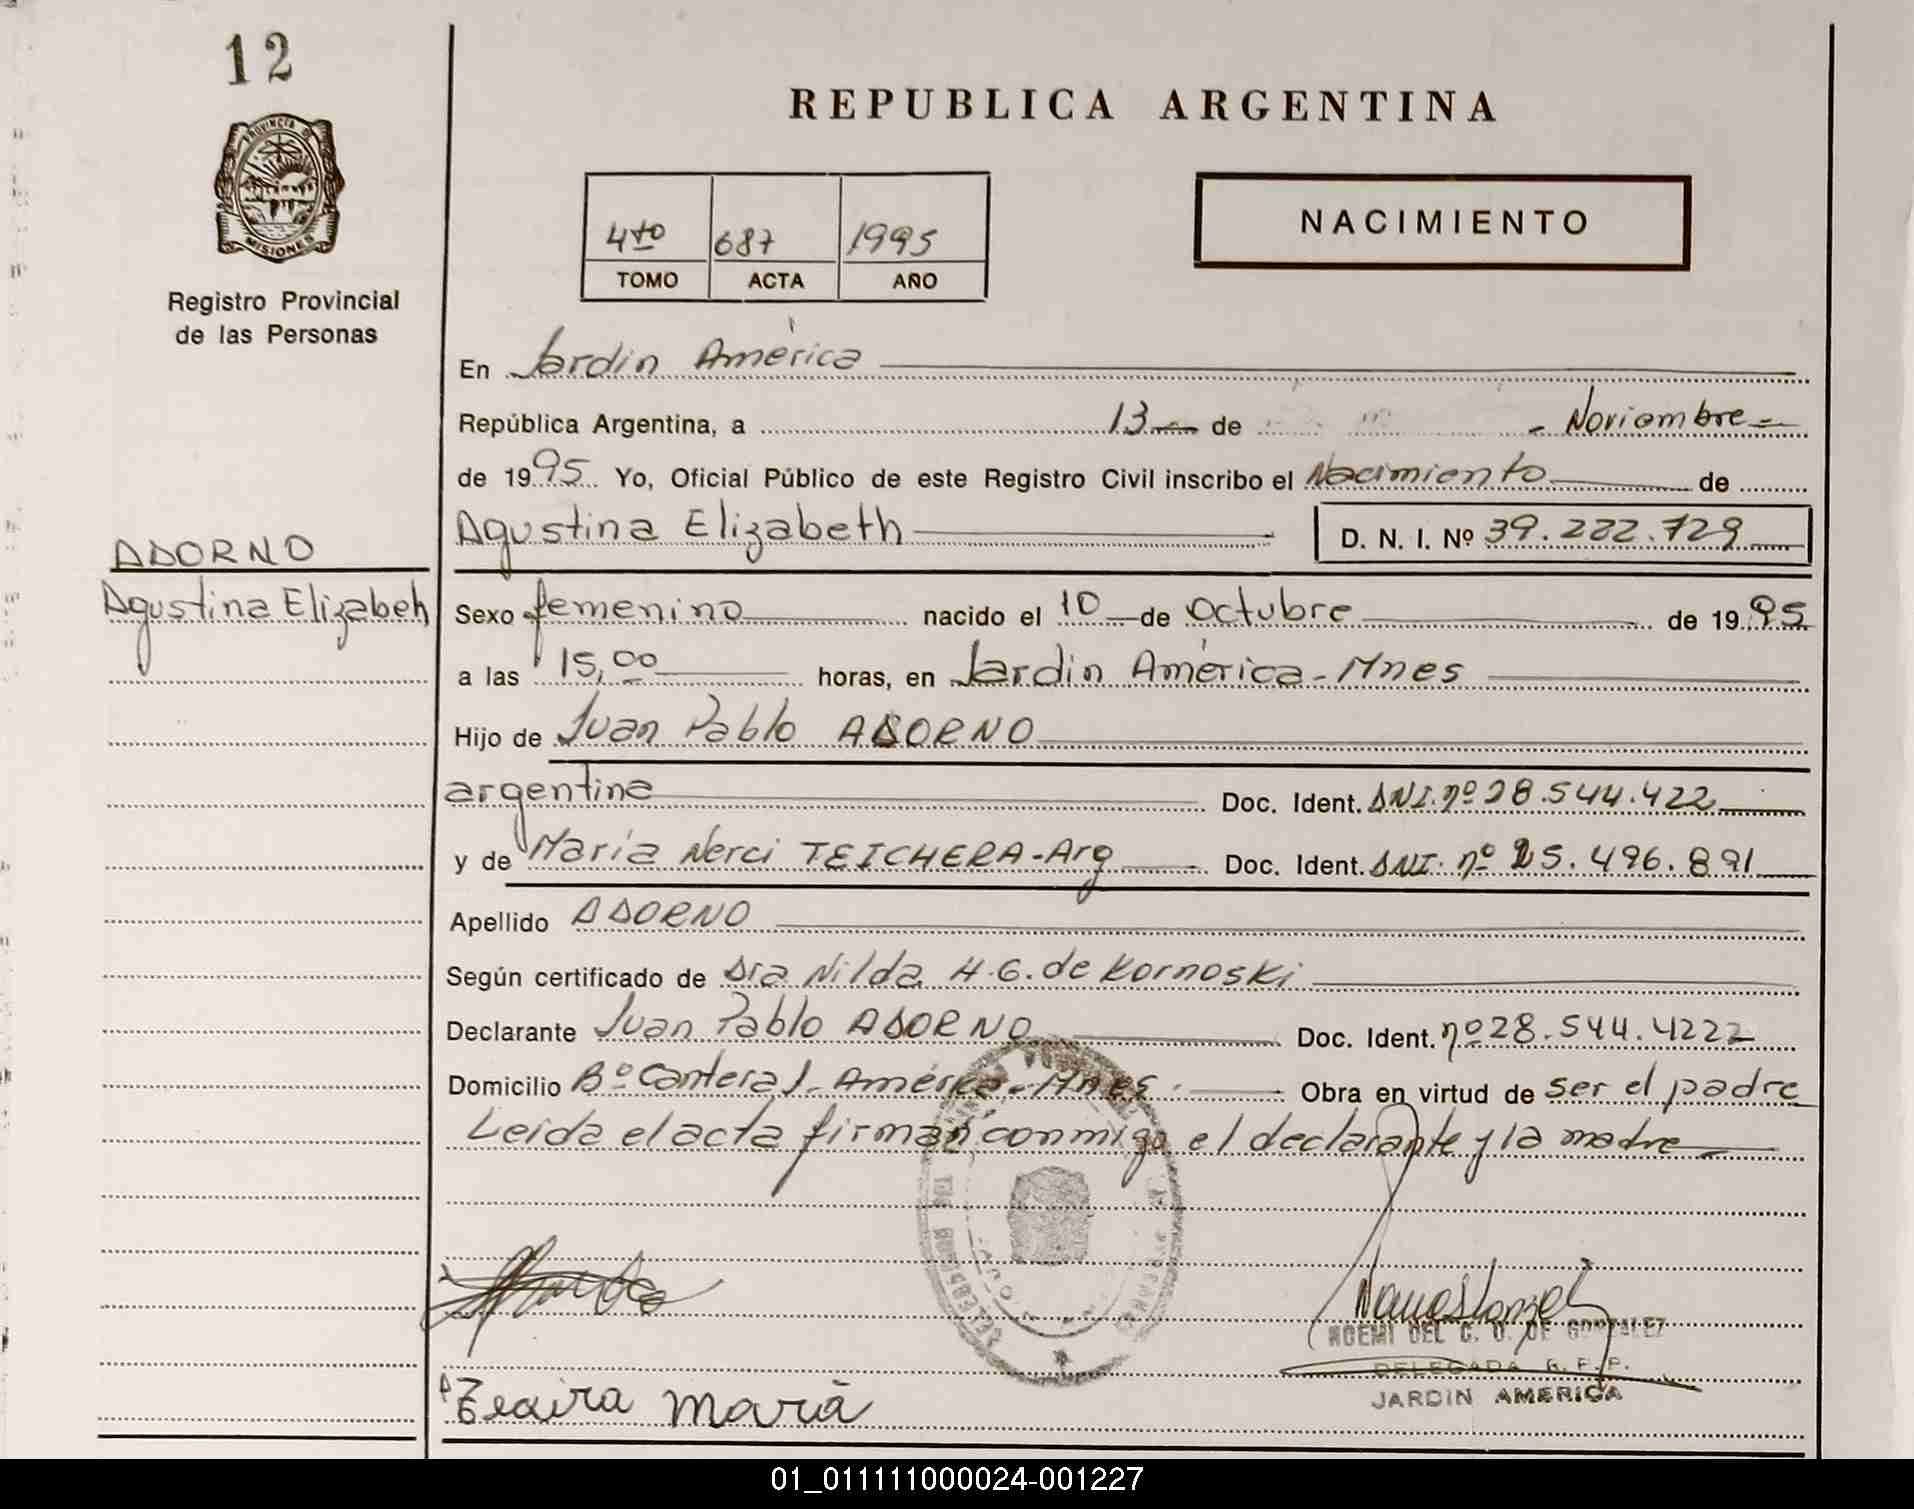 12
REPUBLICA ARGENTINA
PROVINCIA D MISIONES
4to 687 1995
TOMO ACTA AÑO
NACIMIENTO
Registro Provincial
de las Personas
En Jardin América
República Argentina, a 13 de Noviembre
de 1995 Yo, Oficial Público de este Registro Civil inscribo el Nacimiento de
Agustina Elizabeth D. N. I. Nº 39.222.729
ADORNO
Agustina Elizabeh
Sexo femenino nacido el 10 de octubre de 1995
a las 15,00 horas, en Jardin América-Mnes
Hijo de Juan Pablo ADORNO
argentina Doc. Ident. DNI. nº 28.544.422
y de María Nerci TEICHERA-Arg Doc. Ident. DNI. nº 25.496.891
Apellido ADORNO
Según certificado de Dra Nilda H.G. de Kornoski
Declarante Juan Pablo ADORNO Doc. Ident. nº 28.544.4222
Domicilio Bº Cantera J. América-Mnes Obra en virtud de ser el padre
Leída el acta firman conmigo el declarante y la madre
NOEMI DEL C. O. DE GONZALEZ
DELEGADA R. P. P.
JARDIN AMERICA
Teaira maria
01_011111000024-001227